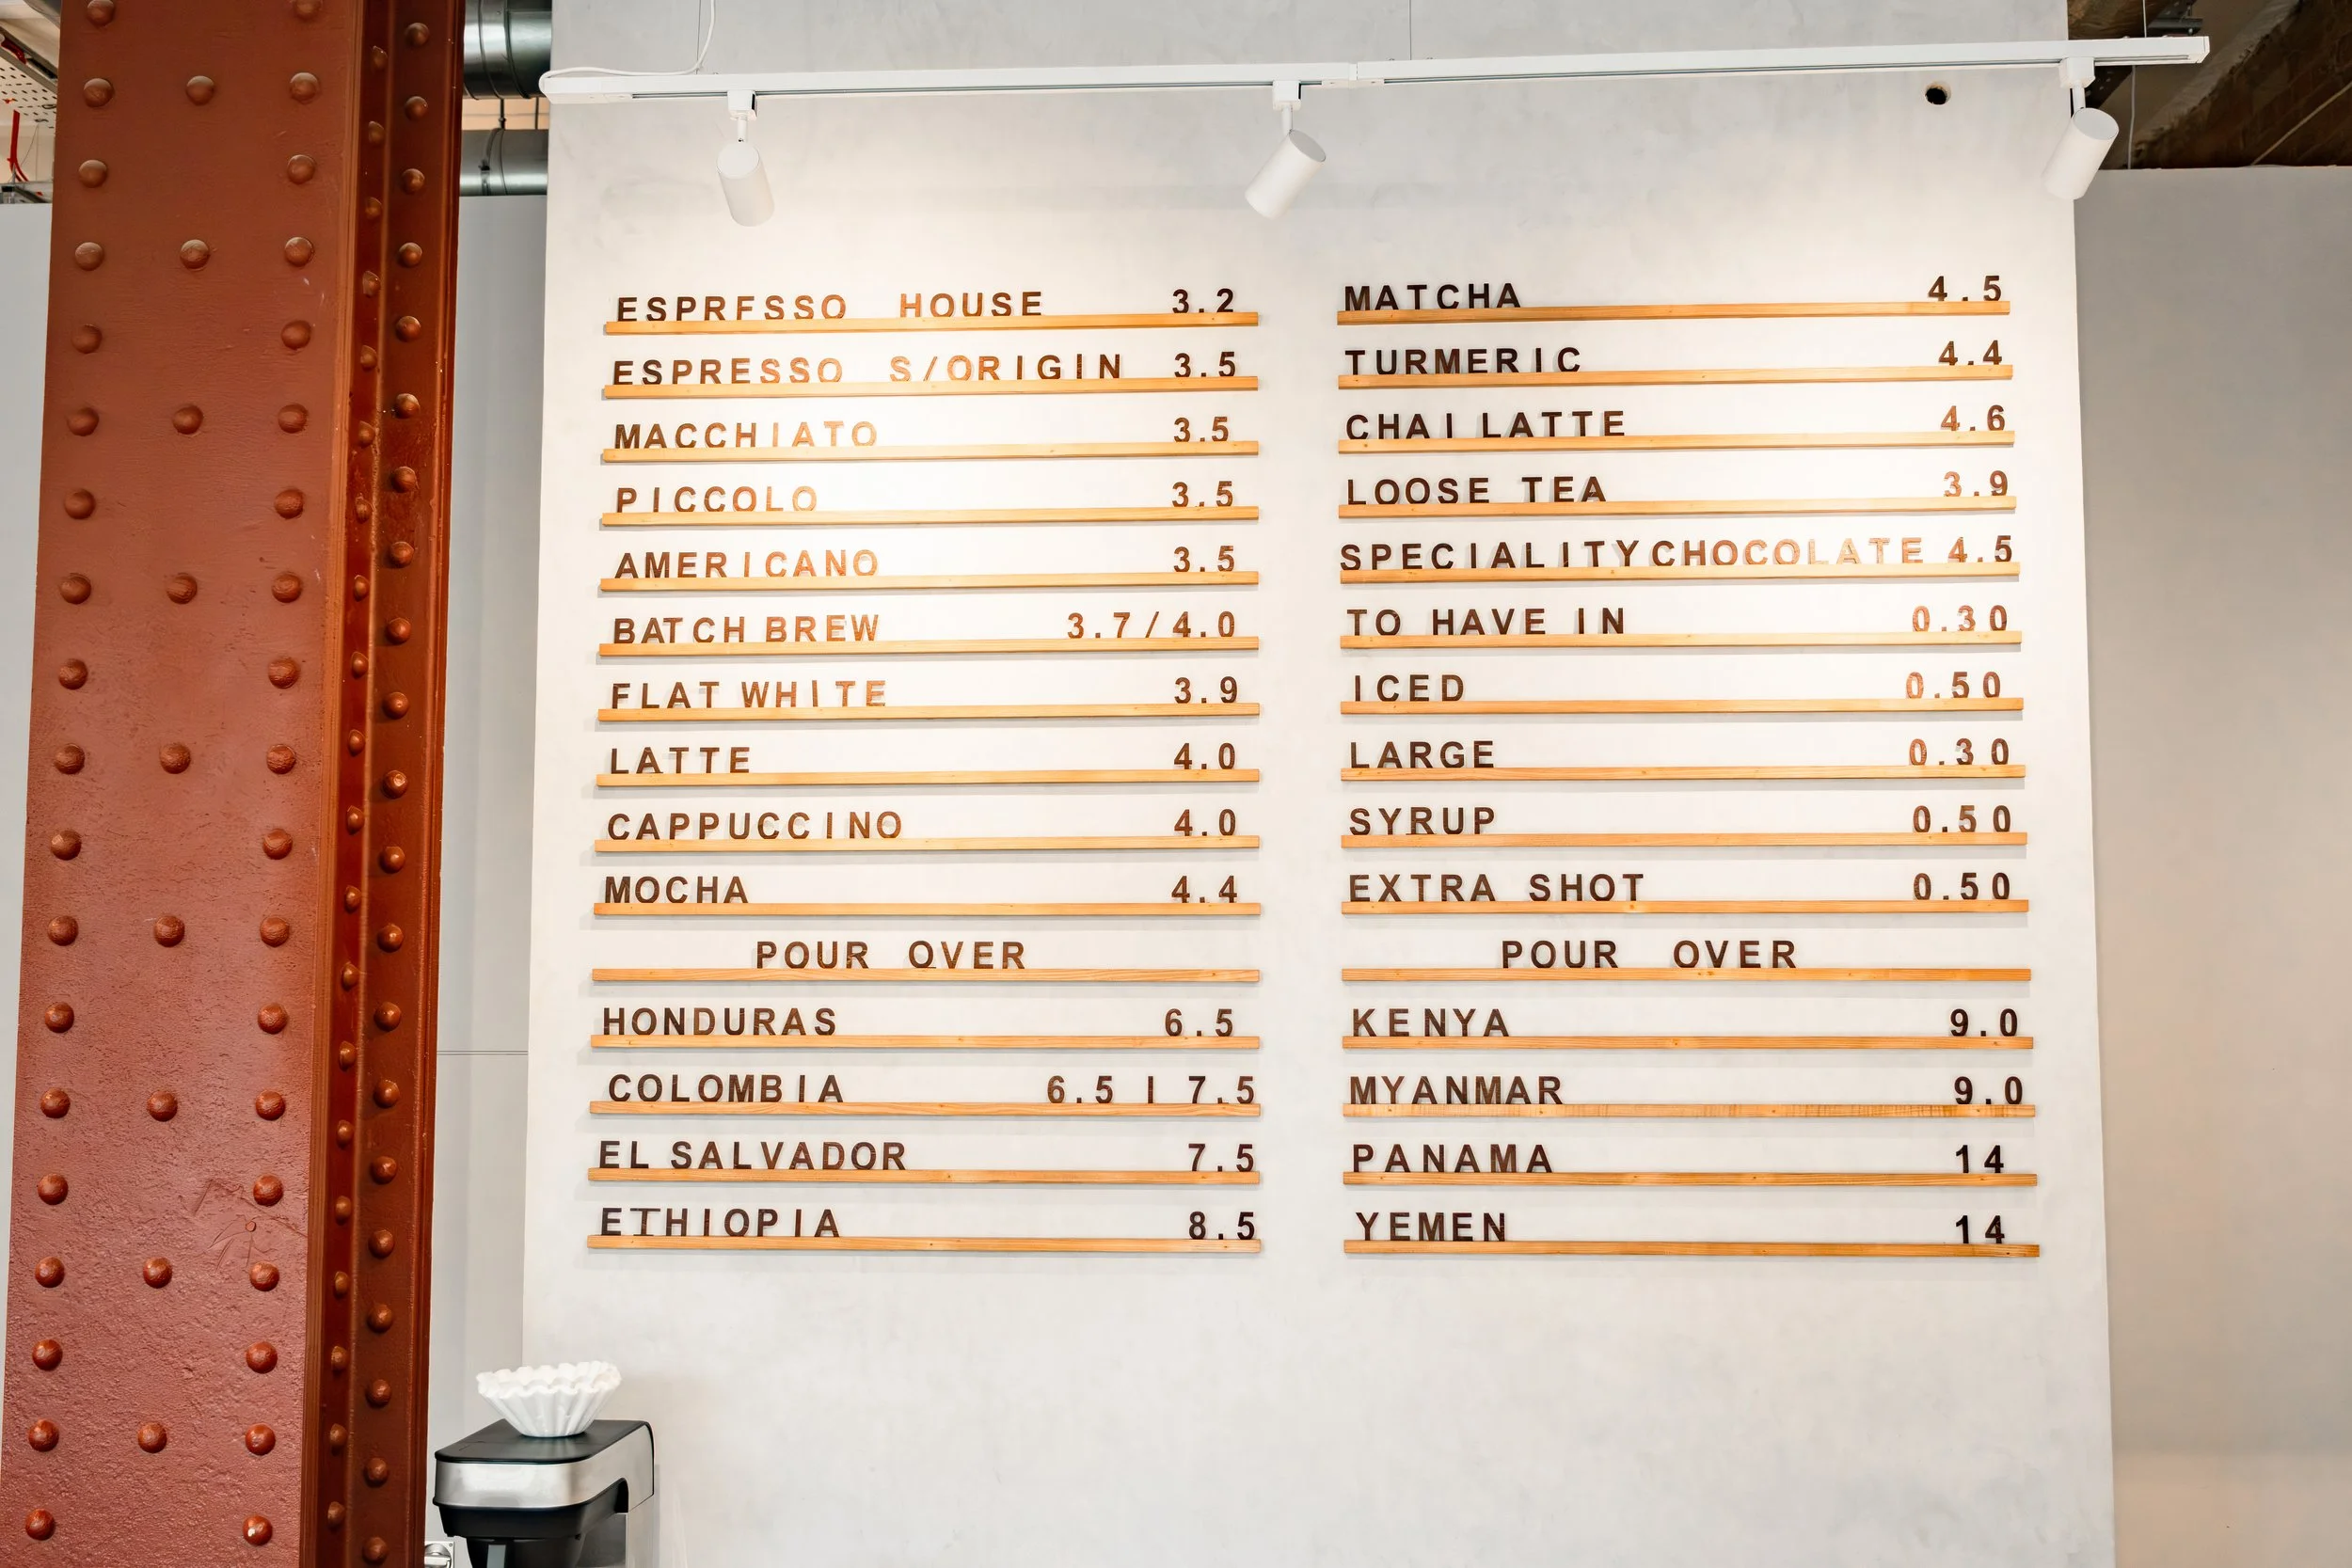 ESPRFSSO HOUSE 3.2
ESPRESSO S/ORIGIN 3.5
MACCHIATO 3.5
PICCOLO 3.5
AMERICANO 3.5
BATCH BREW 3.7/4.0
FLAT WHITE 3.9
LATTE 4.0
CAPPUCCINO 4.0
MOCHA 4.4
POUR OVER
HONDURAS 6.5
COLOMBIA 6.5 | 7.5
EL SALVADOR 7.5
ETHIOPIA 8.5
MATCHA 4.5
TURMERIC 4.4
CHAI LATTE 4.6
LOOSE TEA 3.9
SPECIALITY CHOCOLATE 4.5
TO HAVE IN 0.30
ICED 0.50
LARGE 0.30
SYRUP 0.50
EXTRA SHOT 0.50
POUR OVER
KENYA 9.0
MYANMAR 9.0
PANAMA 14
YEMEN 14